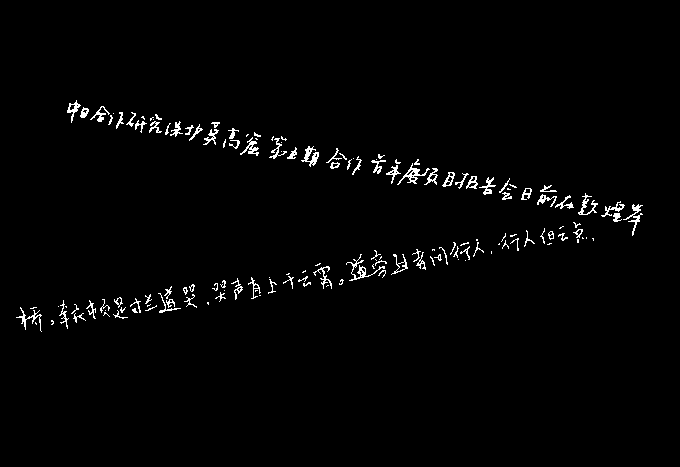 中日合作研究保护莫高窟第五期合作首年度项目报告会日前在敦煌举
桥。牵衣顿足拦道哭，哭声直上干云霄。道旁过者问行人，行人但云点，